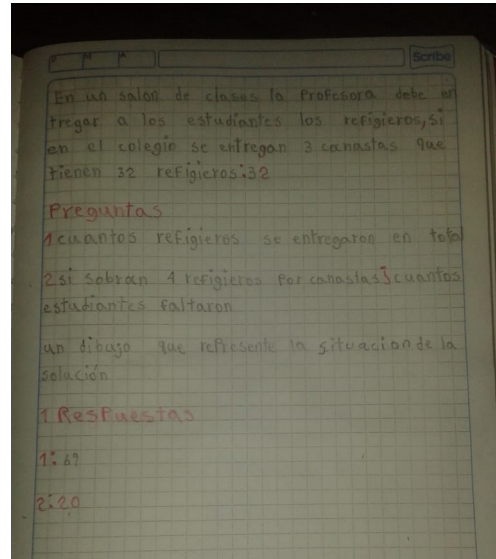 D M A
Scribe
En un salon de clases la Profesora debe en
tregar a los estudiantes los refigieros, si
en el colegio se entregan 3 canastas que
tienen 32 refigieros:32
Preguntas
1 cuantos refigieros se entregaron en total
2 si sobran 4 refigieros por canastas cuantos
estudiantes faltaron
un dibujo que represente la situacion de la
solución
1 Respuestas
1: 69
2:20